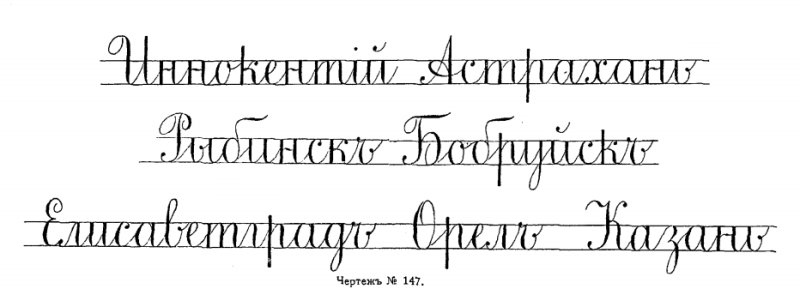 Иннокентій Астрахань
Рыбинскъ Бобруйскъ
Елисаветградъ Орелъ Казань
Чертежъ № 147.